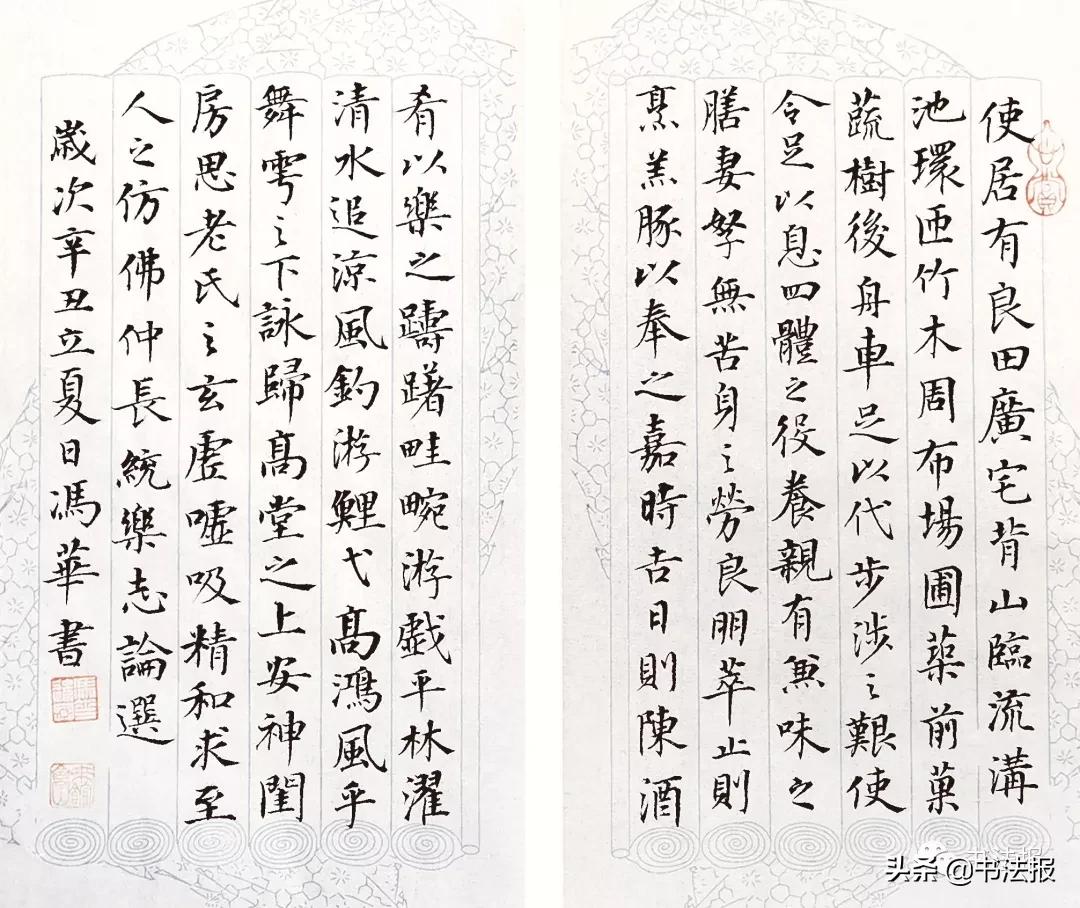 使居有良田廣宅背山臨流溝
池環匝竹木周布場圃築前菓
蔬樹後舟車足以代步涉之艱使
令足以息四體之役養親有兼味之
膳妻孥無苦身之勞良朋萃止則
烹羔豚以奉之嘉時吉日則陳酒
肴以樂之躊躇畦畹游戲平林濯
清水追涼風釣游鯉弋高鴻風乎
舞雩之下詠歸高堂之上安神閨
房思老氏之玄虛嘘吸精和求至
人之仿佛仲長統樂志論選
歲次辛丑立夏日馮華書
头条 @书法报
书法报